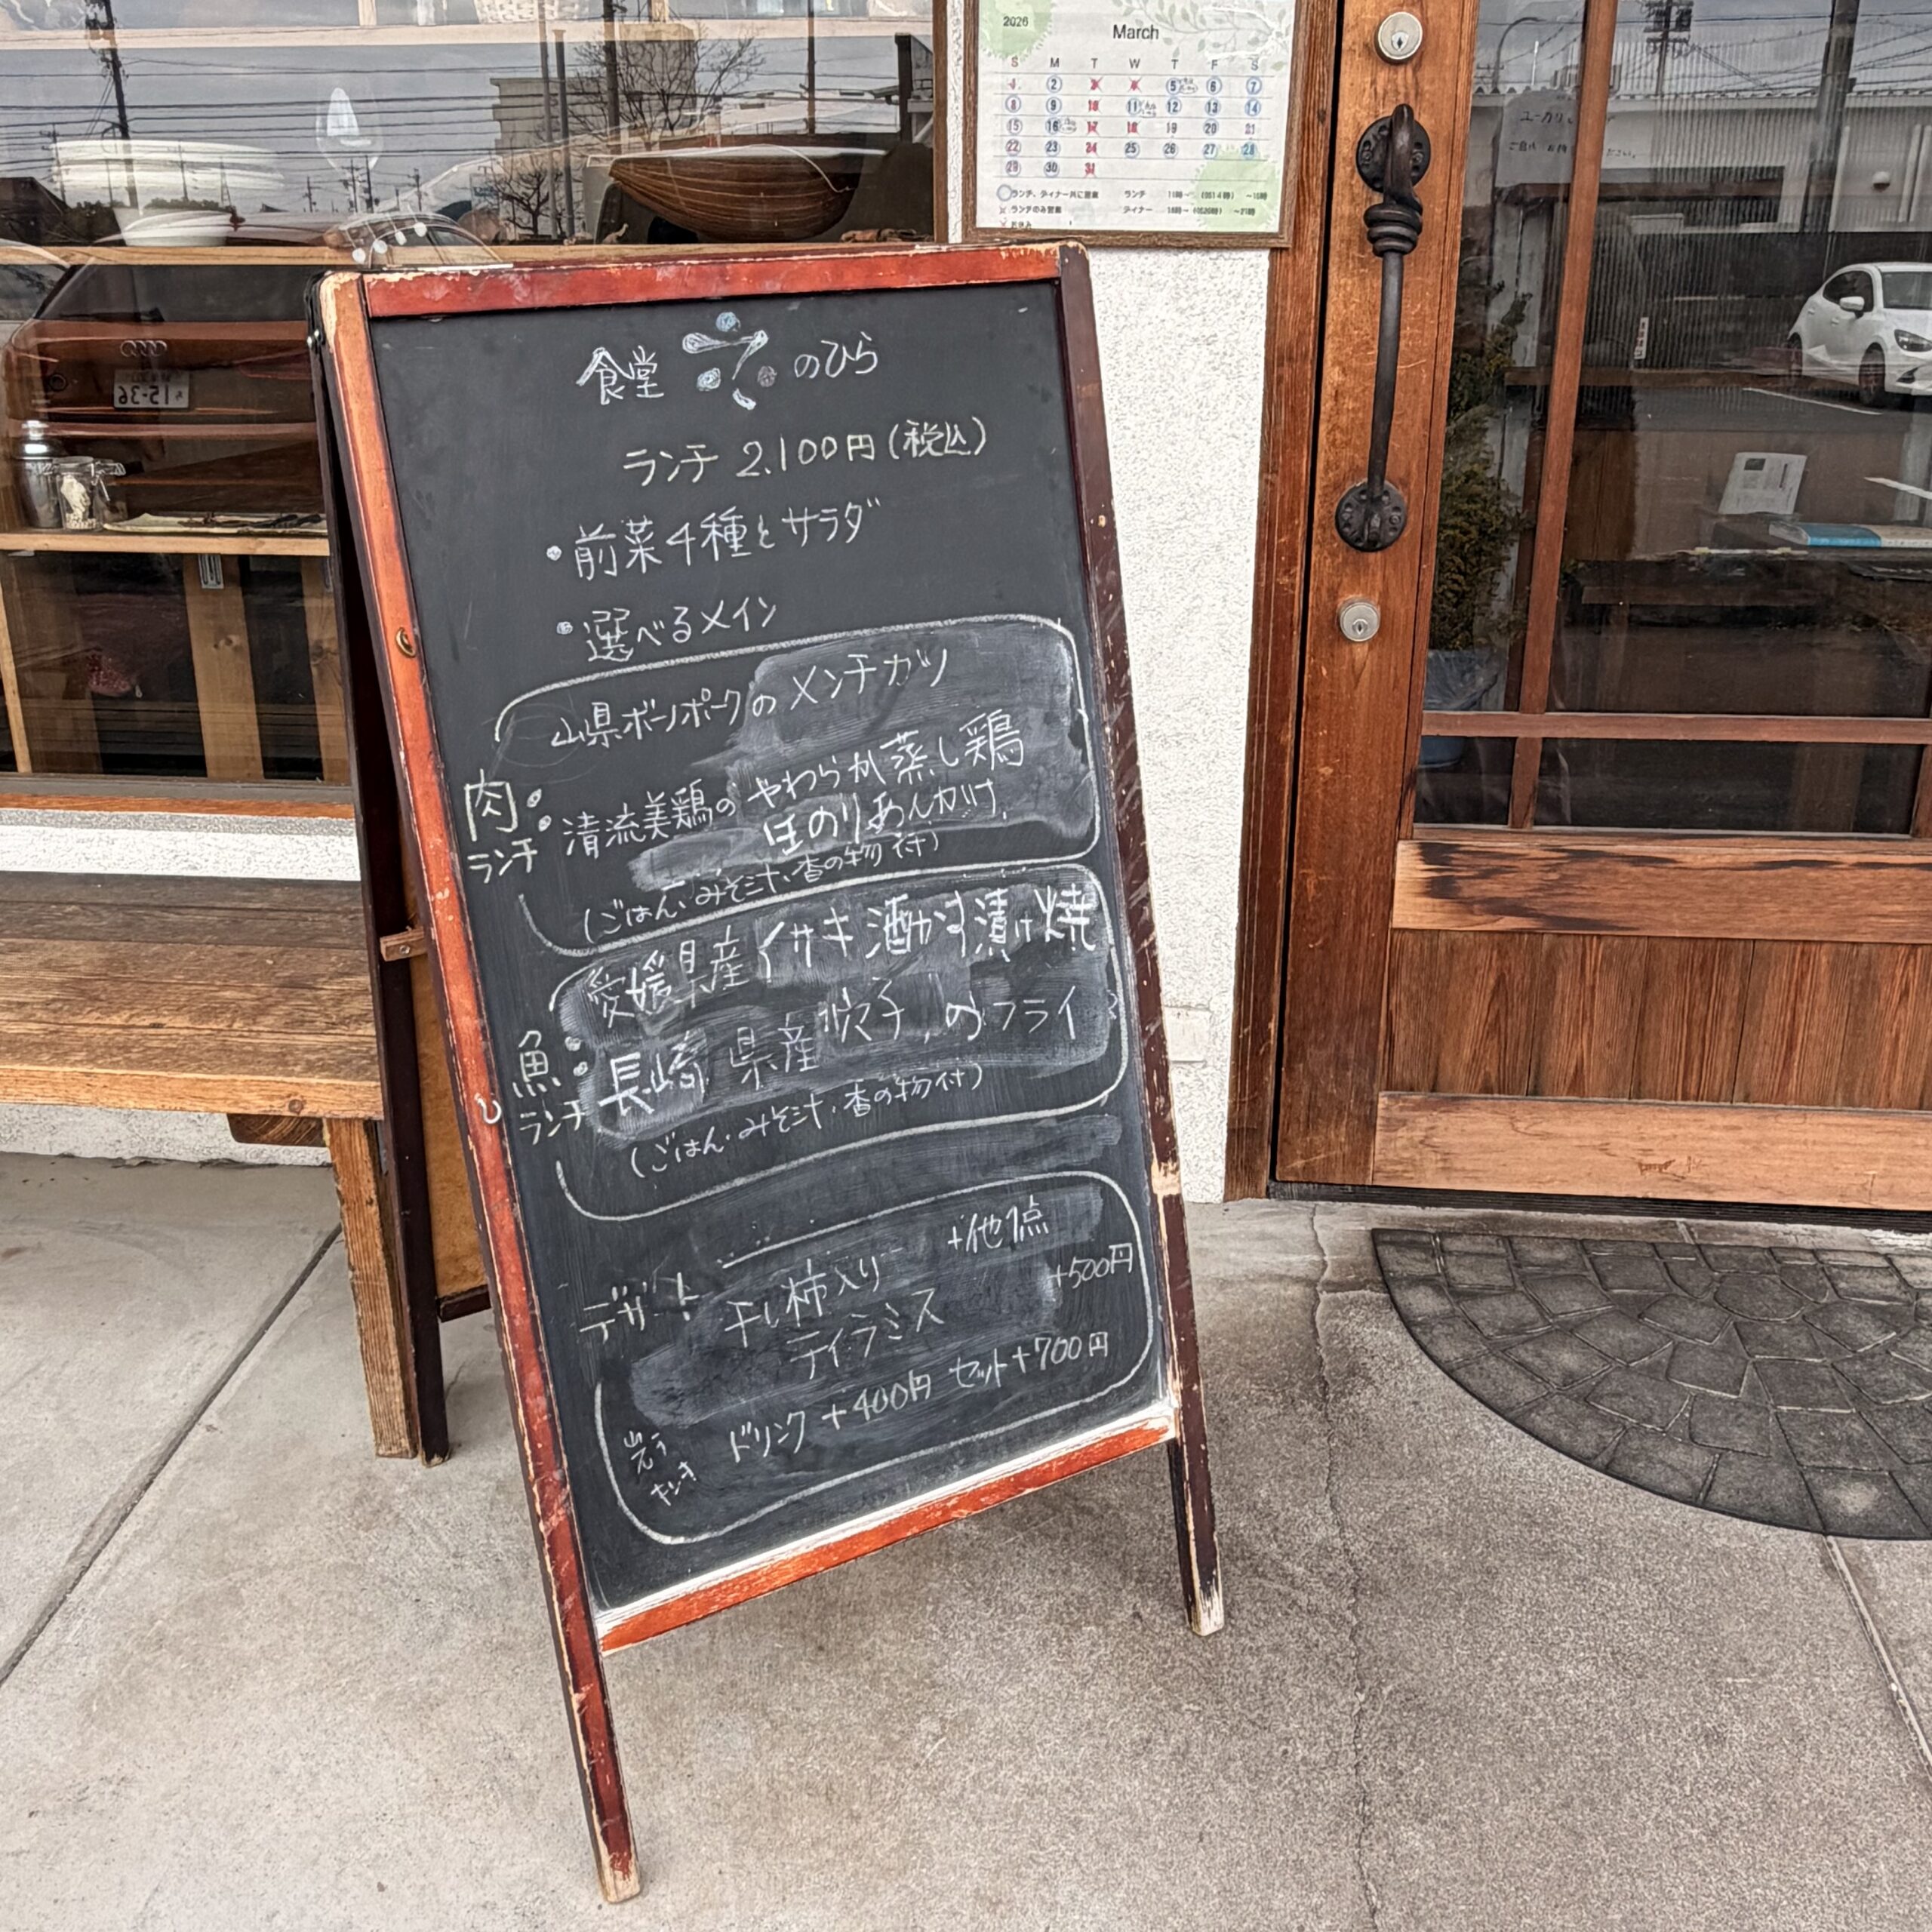 食堂 てのひら
ランチ 2.100円(税込)
・前菜4種とサラダ
・選べるメイン
山県ボーノポークのメンチカツ
肉:
ランチ
清流美鶏のやわらか蒸し鶏
ほのりあんかけ
(ごはん・みそ汁・香の物付)
愛媛県産イサキ酒かす漬け焼
魚:
ランチ
長崎県産 のフライ
(ごはん・みそ汁・香の物付)
デザート
+他1点
干し柿入り
ティラミス
+500円
ドリンク +400円 セット+700円
2026
March
S M T W T F S
1 2 3 4 5 6 7
8 9 10 11 12 13 14
15 16 17 18 19 20 21
22 23 24 25 26 27 28
29 30 31
ランチ、ディナー共に営業
ランチのみ営業
お休み
ランチ 11時~
ディナー 18時~
15-36